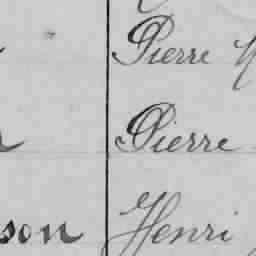 Pierre
Pierre
son Henri